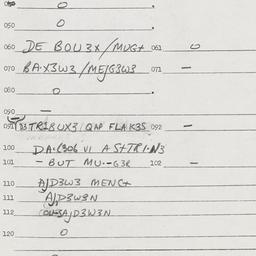 050 0
060 DE BOU3X/MUG+ 061 0
070 BA.X3W3/MEJG3W3 071 –
080 0
090 –
091 33TR1BUX3/QNP FLAK3S 092 –
100 DA. VI A S+TRI.N3
101 – BUT MU.-G3R 102 –
110 AJD3W3 MENC+
111 AJD3W3N
112 AJD3W3N
120 0